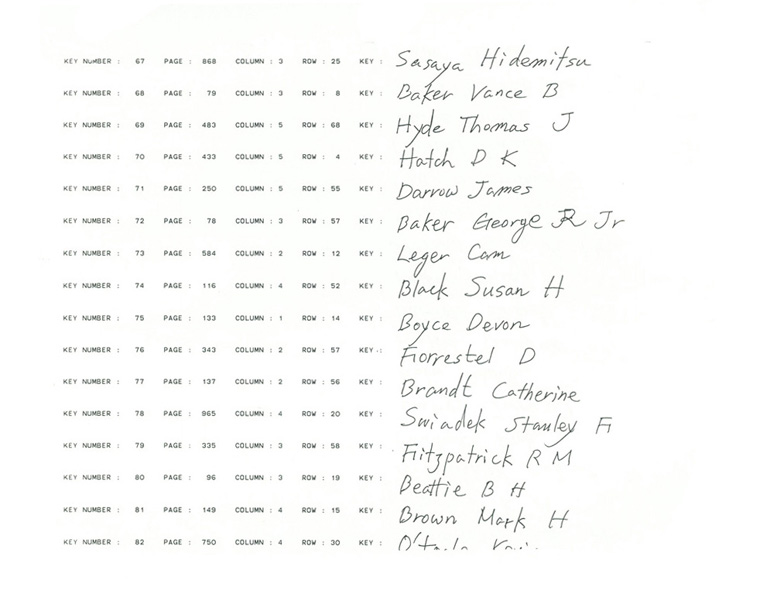 KEY NUMBER : 67 PAGE : 868 COLUMN : 3 ROW : 25 KEY : Sasaya Hidemitsu
KEY NUMBER : 68 PAGE : 79 COLUMN : 3 ROW : 8 KEY : Baker Vance B
KEY NUMBER : 69 PAGE : 483 COLUMN : 5 ROW : 68 KEY : Hyde Thomas J
KEY NUMBER : 70 PAGE : 433 COLUMN : 5 ROW : 4 KEY : Hatch D K
KEY NUMBER : 71 PAGE : 250 COLUMN : 5 ROW : 55 KEY : Darrow James
KEY NUMBER : 72 PAGE : 78 COLUMN : 3 ROW : 57 KEY : Baker George R Jr
KEY NUMBER : 73 PAGE : 584 COLUMN : 2 ROW : 12 KEY : Leger Cam
KEY NUMBER : 74 PAGE : 116 COLUMN : 4 ROW : 52 KEY : Black Susan H
KEY NUMBER : 75 PAGE : 133 COLUMN : 1 ROW : 14 KEY : Boyce Devon
KEY NUMBER : 76 PAGE : 343 COLUMN : 2 ROW : 57 KEY : Forrestel D
KEY NUMBER : 77 PAGE : 137 COLUMN : 2 ROW : 56 KEY : Brandt Catherine
KEY NUMBER : 78 PAGE : 965 COLUMN : 4 ROW : 20 KEY : Swiadek Stanley F
KEY NUMBER : 79 PAGE : 335 COLUMN : 3 ROW : 58 KEY : Fitzpatrick R M
KEY NUMBER : 80 PAGE : 96 COLUMN : 3 ROW : 19 KEY : Beattie B H
KEY NUMBER : 81 PAGE : 149 COLUMN : 4 ROW : 15 KEY : Brown Mark H
KEY NUMBER : 82 PAGE : 750 COLUMN : 4 ROW : 30 KEY :